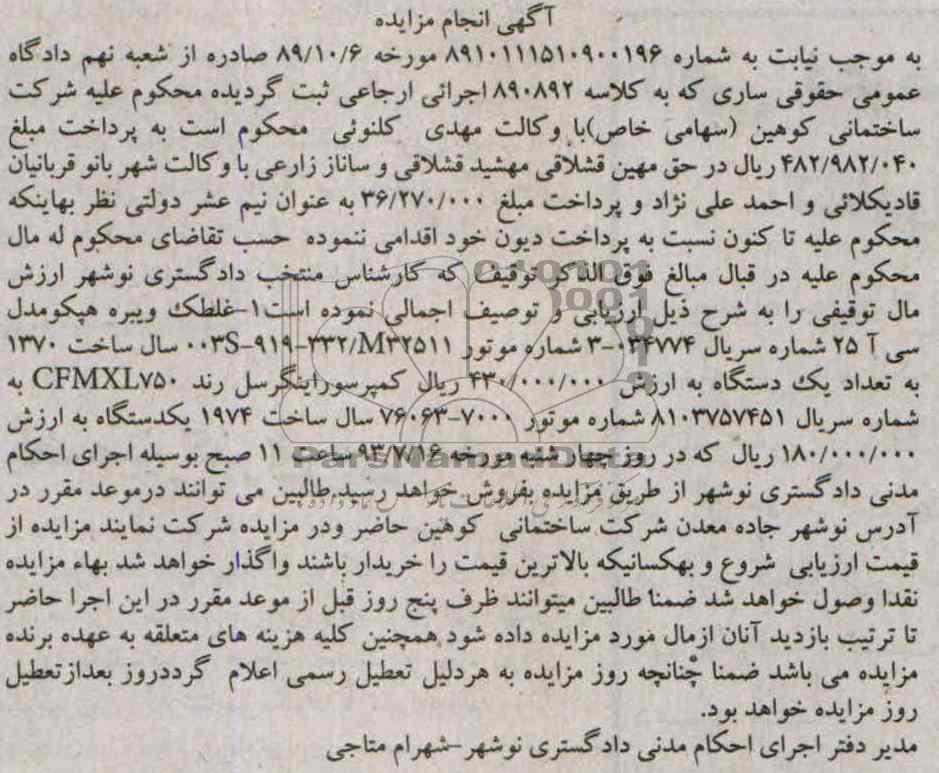 آگهی انجام مزایده
به موجب نیابت به شماره ۸۹۱۰۱۱۱۵۱۰۹۰۰۱۹۶ مورخه ۸۹/۱۰/۶ صادره از شعبه نهم دادگاه
عمومی حقوقی ساری که به کلاسه ۸۹۰۸۹۲ اجرائی ارجاعی ثبت گردیده محکوم علیه شرکت
ساختمانی کوهین (سهامی خاص)با وکالت مهدی کلنوئی محکوم است به پرداخت مبلغ
۴۸۲/۹۸۲/۰۴۰ ریال در حق مهین قشلاقی مهشید قشلاقی و ساناز زارعی با وکالت شهر بانو قربانیان
قادیکلائی و احمد علی نژاد و پرداخت مبلغ ۳۶/۲۷۰/۰۰۰ به عنوان نیم عشر دولتی نظر بهاینکه
محکوم علیه تا کنون نسبت به پرداخت دیون خود اقدامی ننموده حسب تقاضای محکوم له مال
محکوم علیه در قبال مبالغ فوق الذکر توقیف که کارشناس منتخب دادگستری نوشهر ارزش
مال توقیفی را به شرح ذیل ارزیابی و توصیف اجمالی نموده است۱-غلطک ویبره هپکومدل
سی آ ۲۵ شماره سریال ۰۳۴۷۷۴-۳ شماره موتور ۰۰۳S-۹۱۹-۳۳۲/M۳۲۵۱۱ سال ساخت ۱۳۷۰
به تعداد یک دستگاه به ارزش ۴۳۰/۰۰۰/۰۰۰ ریال کمپرسوراینگرسل رند CFMXL۷۵۰ به
شماره سریال ۸۱۰۳۷۵۷۴۵۱ شماره موتور ۷۰۰۰-۷۶۰۶۳ سال ساخت ۱۹۷۴ یکدستگاه به ارزش
۱۸۰/۰۰۰/۰۰۰ ریال که در روز چهار شنبه مورخه ۹۳/۷/۱۶ ساعت ۱۱ صبح بوسیله اجرای احکام
مدنی دادگستری نوشهر از طریق مزایده بفروش خواهد رسید.طالبین می توانند درموعد مقرر در
آدرس نوشهر جاده معدن شرکت ساختمانی کوهین حاضر ودر مزایده شرکت نمایند مزایده از
قیمت ارزیابی شروع و بهکسانیکه بالاترین قیمت را خریدار باشند واگذار خواهد شد بهاء مزایده
نقدا وصول خواهد شد ضمنا طالبین میتوانند ظرف پنج روز قبل از موعد مقرر در این اجرا حاضر
تا ترتیب بازدید آنان ازمال مورد مزایده داده شود همچنین کلیه هزینه های متعلقه به عهده برنده
مزایده می باشد ضمنا چنانچه روز مزایده به هردلیل تعطیل رسمی اعلام گرددروز بعدازتعطیل
روز مزایده خواهد بود.
مدیر دفتر اجرای احکام مدنی دادگستری نوشهر-شهرام متاجی
ParsNamadData